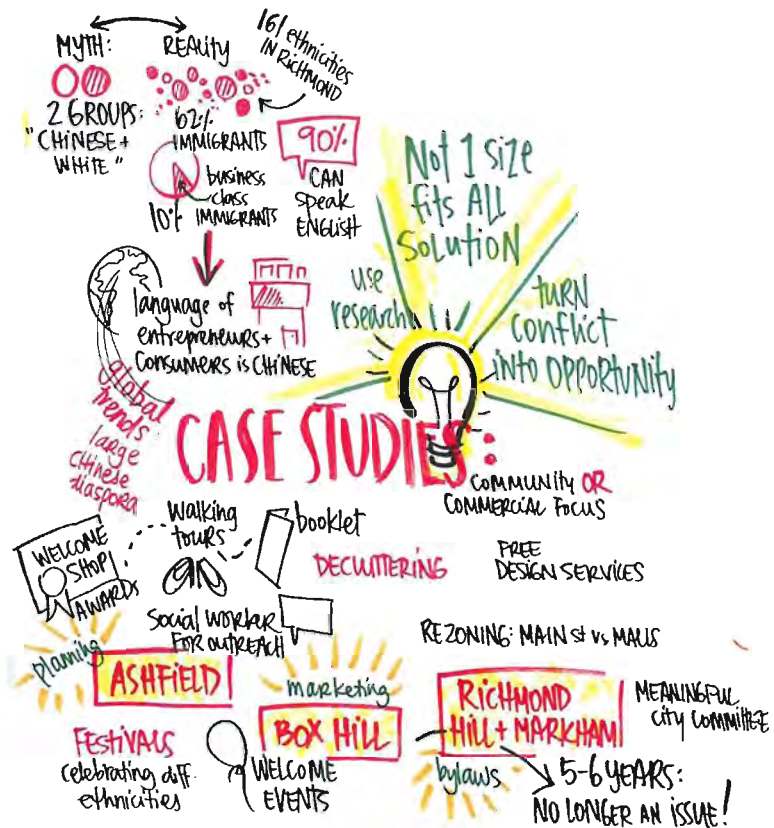 MYTH:
REALITY
161 ethnicities
IN RICHMOND
2 GROUPS:
"CHINESE +
WHITE"
62%
IMMIGRANTS
90%
CAN
speak
ENGLISH
business
class
10% IMMIGRANTS
language of
entrepreneurs +
consumers is CHINESE
global
trends
large
chinese
diaspora
Not 1 size
fits ALL
SOLUTION
use
research
TURN
CONFLICT
INTO OPPORTUNITY
CASE STUDIES:
COMMUNITY OR
COMMERCIAL FOCUS
WELCOME
SHOP!
AWARDS
Walking
tours
booklet
DECLUTTERING
FREE
DESIGN SERVICES
Social worker
FOR OUTREACH
REZONING: MAIN St vs MALLS
planning
ASHFIELD
marketing
BOX HILL
RICHMOND
HILL + MARKHAM
MEANINGFUL
City COMMITTEE
FESTIVALS
celebrating diff.
ethnicities
WELCOME
EVENTS
bylaws
5-6 YEARS:
NO LONGER AN ISSUE!